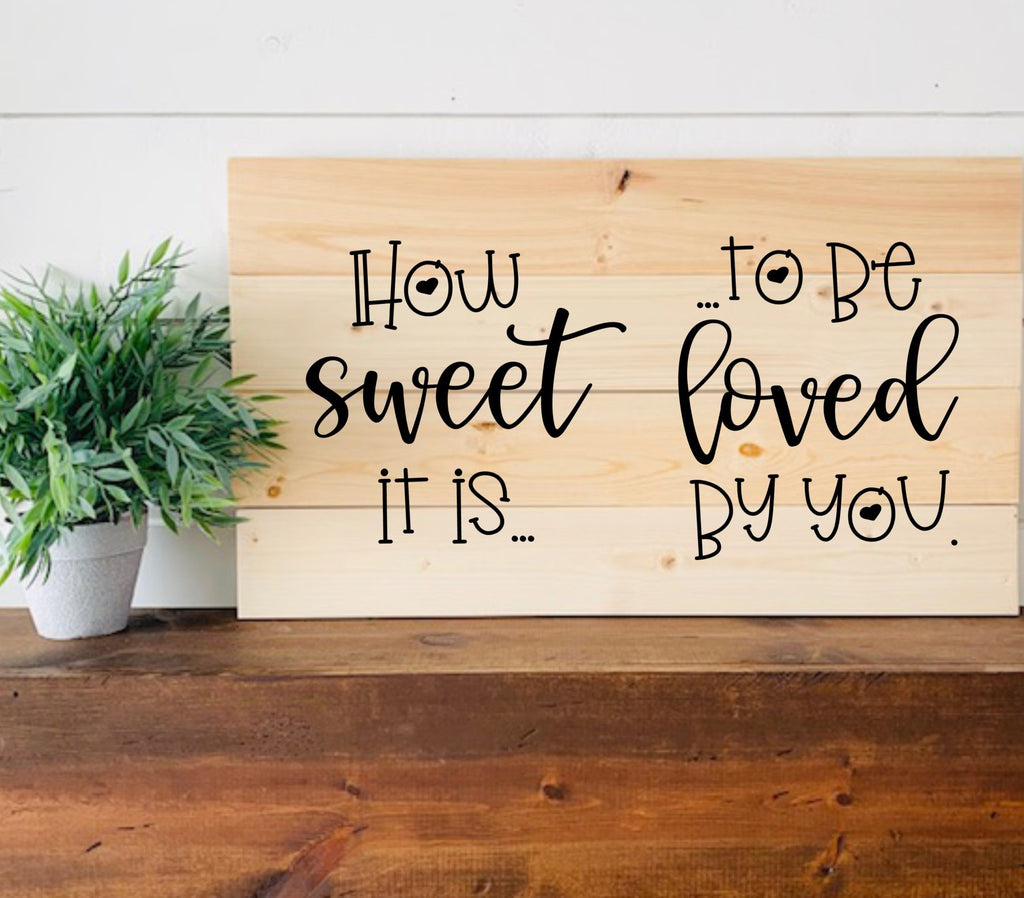 How
sweet
it is...
...to Be
loved
By you.